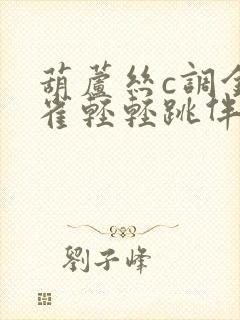 葫蘆絲c調金
雀輕輕跳伴
劉子峰